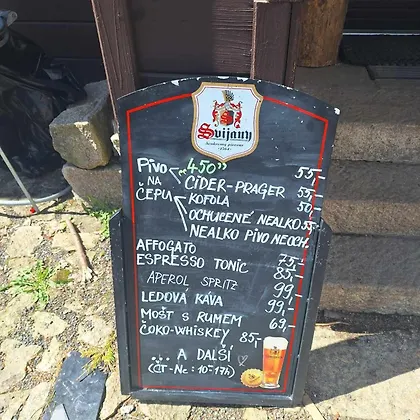 Svijany
Pivo "450" 55,-
NA CIDER-PRAGER 55,-
ČEPU KOFOLA 50,-
OCHUCENÉ NEALKO 55,-
NEALKO PIVO NEOCH.
AFFOGATO 75,-
ESPRESSO TONIC 85,-
APEROL SPRITZ 99,-
LEDOVÁ KÁVA 99,-
MOŠT S RUMEM 69,-
ČOKO-WHISKEY 85,-
... A DALŠÍ
(ČT-NE: 10-17h)